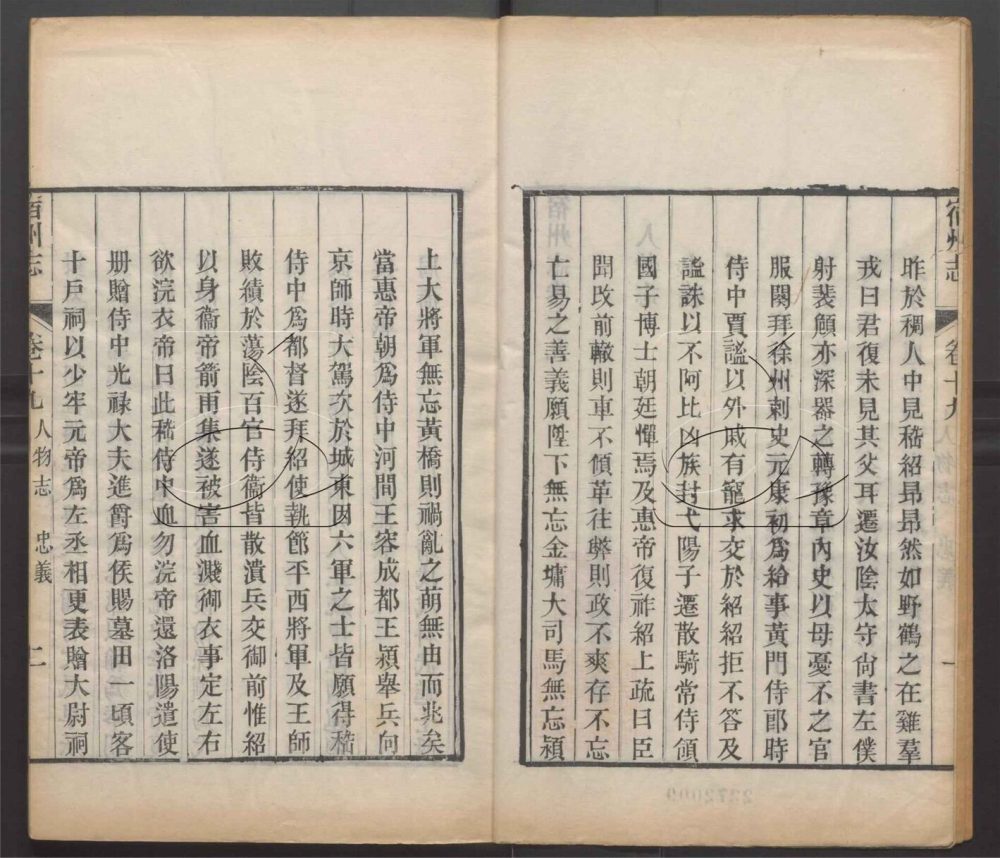 宿州志 卷十九 一
昨於稠人中見嵇紹昂昂然如野鶴之在雞羣
戎曰君復未見其父耳遷汝陰太守尙書左僕
射裴頠亦深器之轉豫章內史以母憂不之官
服闋拜徐州刺史元康初爲給事黃門侍郎時
侍中賈謐以外戚有寵求交於紹紹拒不答及
謐誅以不阿比凶族封弋陽子遷散騎常侍領
國子博士朝廷憚焉及惠帝復祚紹上疏曰臣
聞改前轍則車不傾革往弊則政不爽存不忘
亡易之善義願陛下無忘金墉大司馬無忘潁
上大將軍無忘黃橋則禍亂之萌無由而兆矣
當惠帝朝爲侍中河間王容成都王潁舉兵向
京師時大駕次於城東因六軍之士皆願得嵇
侍中爲都督遂拜紹使執節平西將軍及王師
敗績於蕩陰百官侍衞皆散潰兵交御前惟紹
以身衞帝箭雨集遂被害血濺御衣事定左右
欲浣衣帝曰此嵇侍中血勿浣帝還洛陽遣使
册贈侍中光祿大夫進爵爲侯賜墓田一頃客
十戶祠以少牢元帝爲左丞相更表贈大尉祠
宿州志 卷十九 人物志 忠義 二